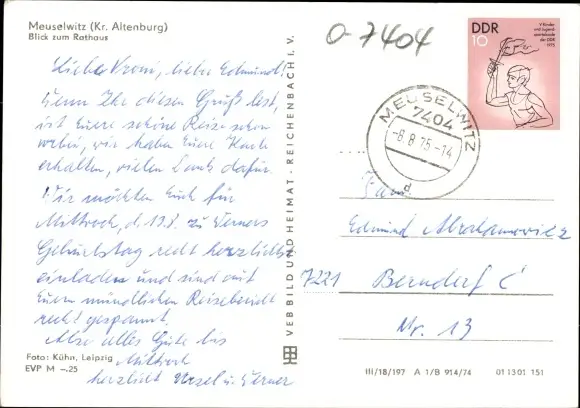 Meuselwitz (Kr. Altenburg)
Blick zum Rathaus
Liebe Vroni, lieber Edmund!
Wenn Ihr diesen Gruß lest,
ist Euere schöne Reise schon
vorbei, wir haben Euere Karte
erhalten, vielen Dank dafür.
Wir möchten Euch für
Mittwoch, d. 13.8. zu Werners
Geburtstag recht herzlichst
einladen und sind auf
Euern mündlichen Reisebericht
recht gespannt.
Also alles Gute bis
Mittwoch
herzlichst Ursel u. Werner
Foto: Kühn, Leipzig
EVP M –.25
VEB BILD UND HEIMAT · REICHENBACH i. V.
0-7404
DDR
10
V Kinder
und Jugend
spartakiade
der DDR
1975
MEUSELWITZ
7404
-8.8.75-14
d
Fam.
Edmund Abrahamowicz
7221 Berndorf C
Nr. 13
III/18/197 A 1/B 914/74 01 13 01 151